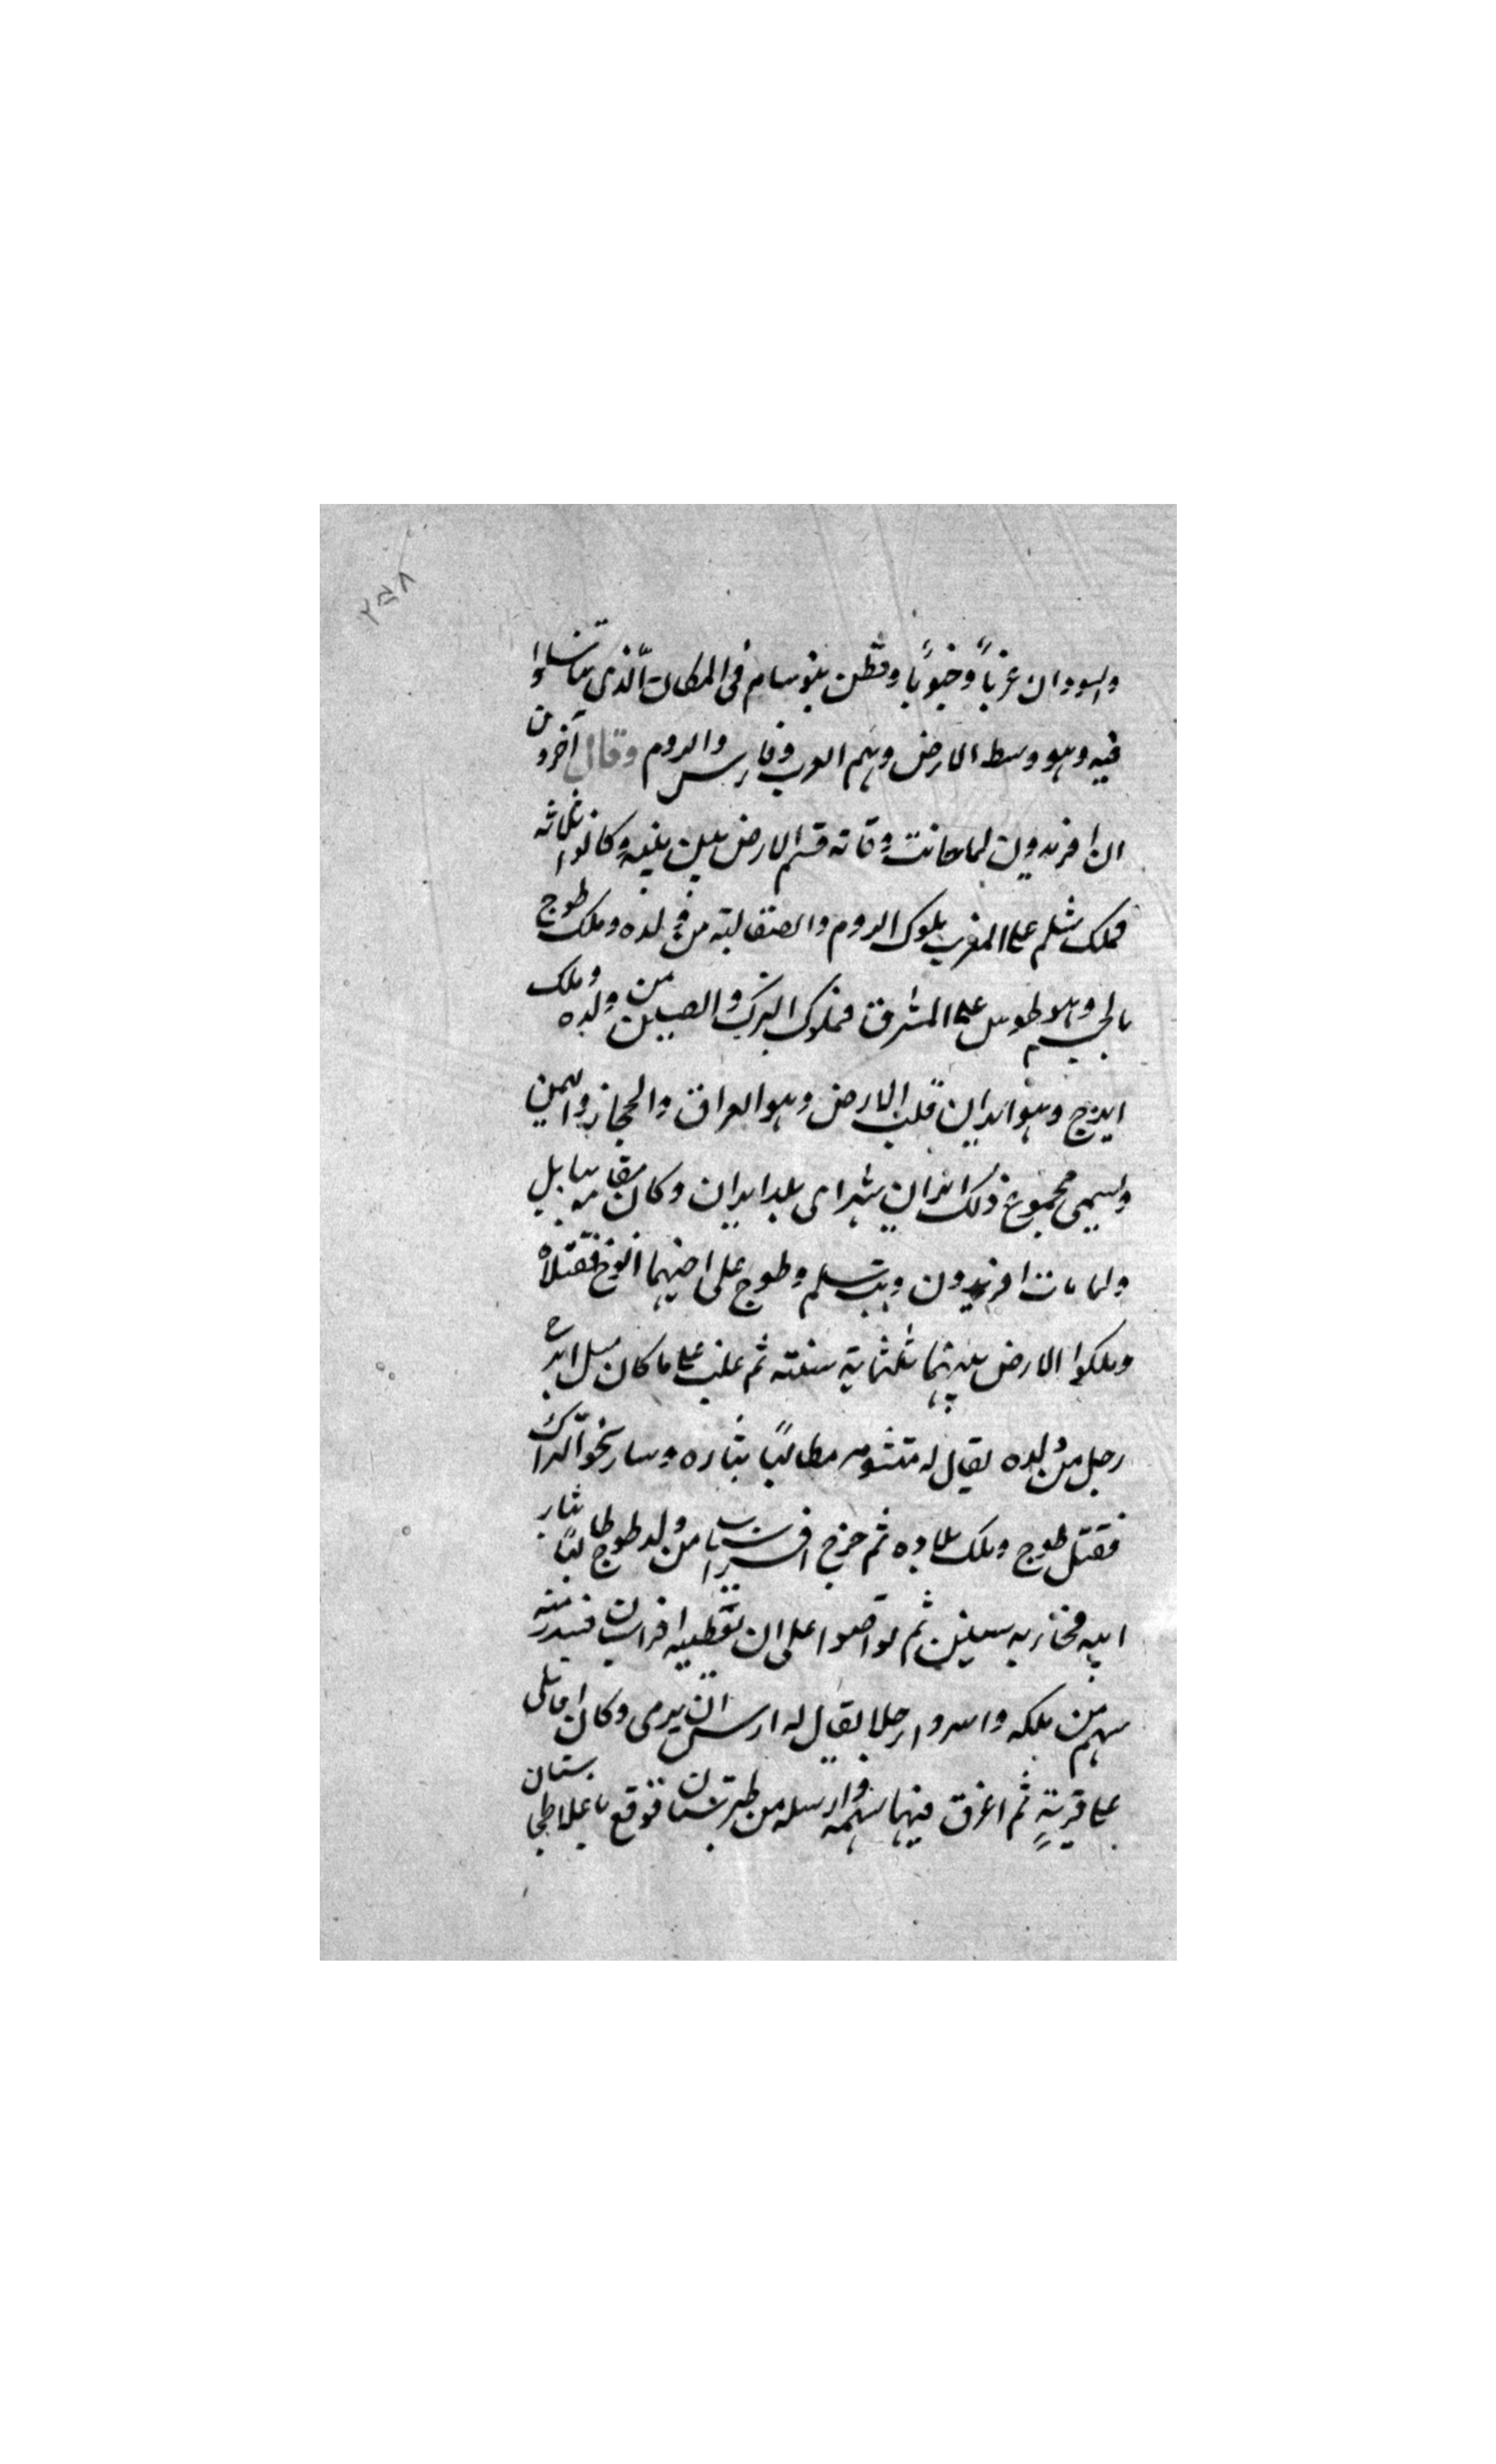 ٢٥٨
والسودان غربًا وجنوبًا وقطن بنو سام فى المكان الّذى تناسلوا
فيه وهو وسط الارض وهم العرب وفارس والروم وقال آخرون
ان افريدون لما حانت وفاته قسم الارض بين بنيه وكانوا ثلاثه
فملك شلم على المغرب ملوك الروم والصقالبة من ولده وملك طوج
بالجيم وهو طوس على المشرق فملوك الترك والصين من ولده وملك
ايرج وهو ايران قلب الارض وهو العراق والحجاز واليمن
وليسمى مجموع ذلك ايران شهر اى بلد ايران وكان مقامه بابل
ولما مات افريدون وثب سلم وطوج على اخيهما ايرج فقتلاه
وملكوا الارض بينهما ثلثماية سنة ثم غلب على ما كان ايرج
رجل من ولده يقال له مطالبًا بثاره وسار نحو اتراك
فقتل طوج وملك بلاده ثم خرج افراسياب من ولد طوج طالبًا بثار
ابيه فحاربه سنين ثم تواضعوا على ان يعطيه افراسيان قدر رمية
سهم من ملكه وامروا رجلا يقال له ارس ان يرمى وكان
على قريةٍ ثم اغرق فيها سهمه وارسله من طبرستان فوقع باعلا طخارستان